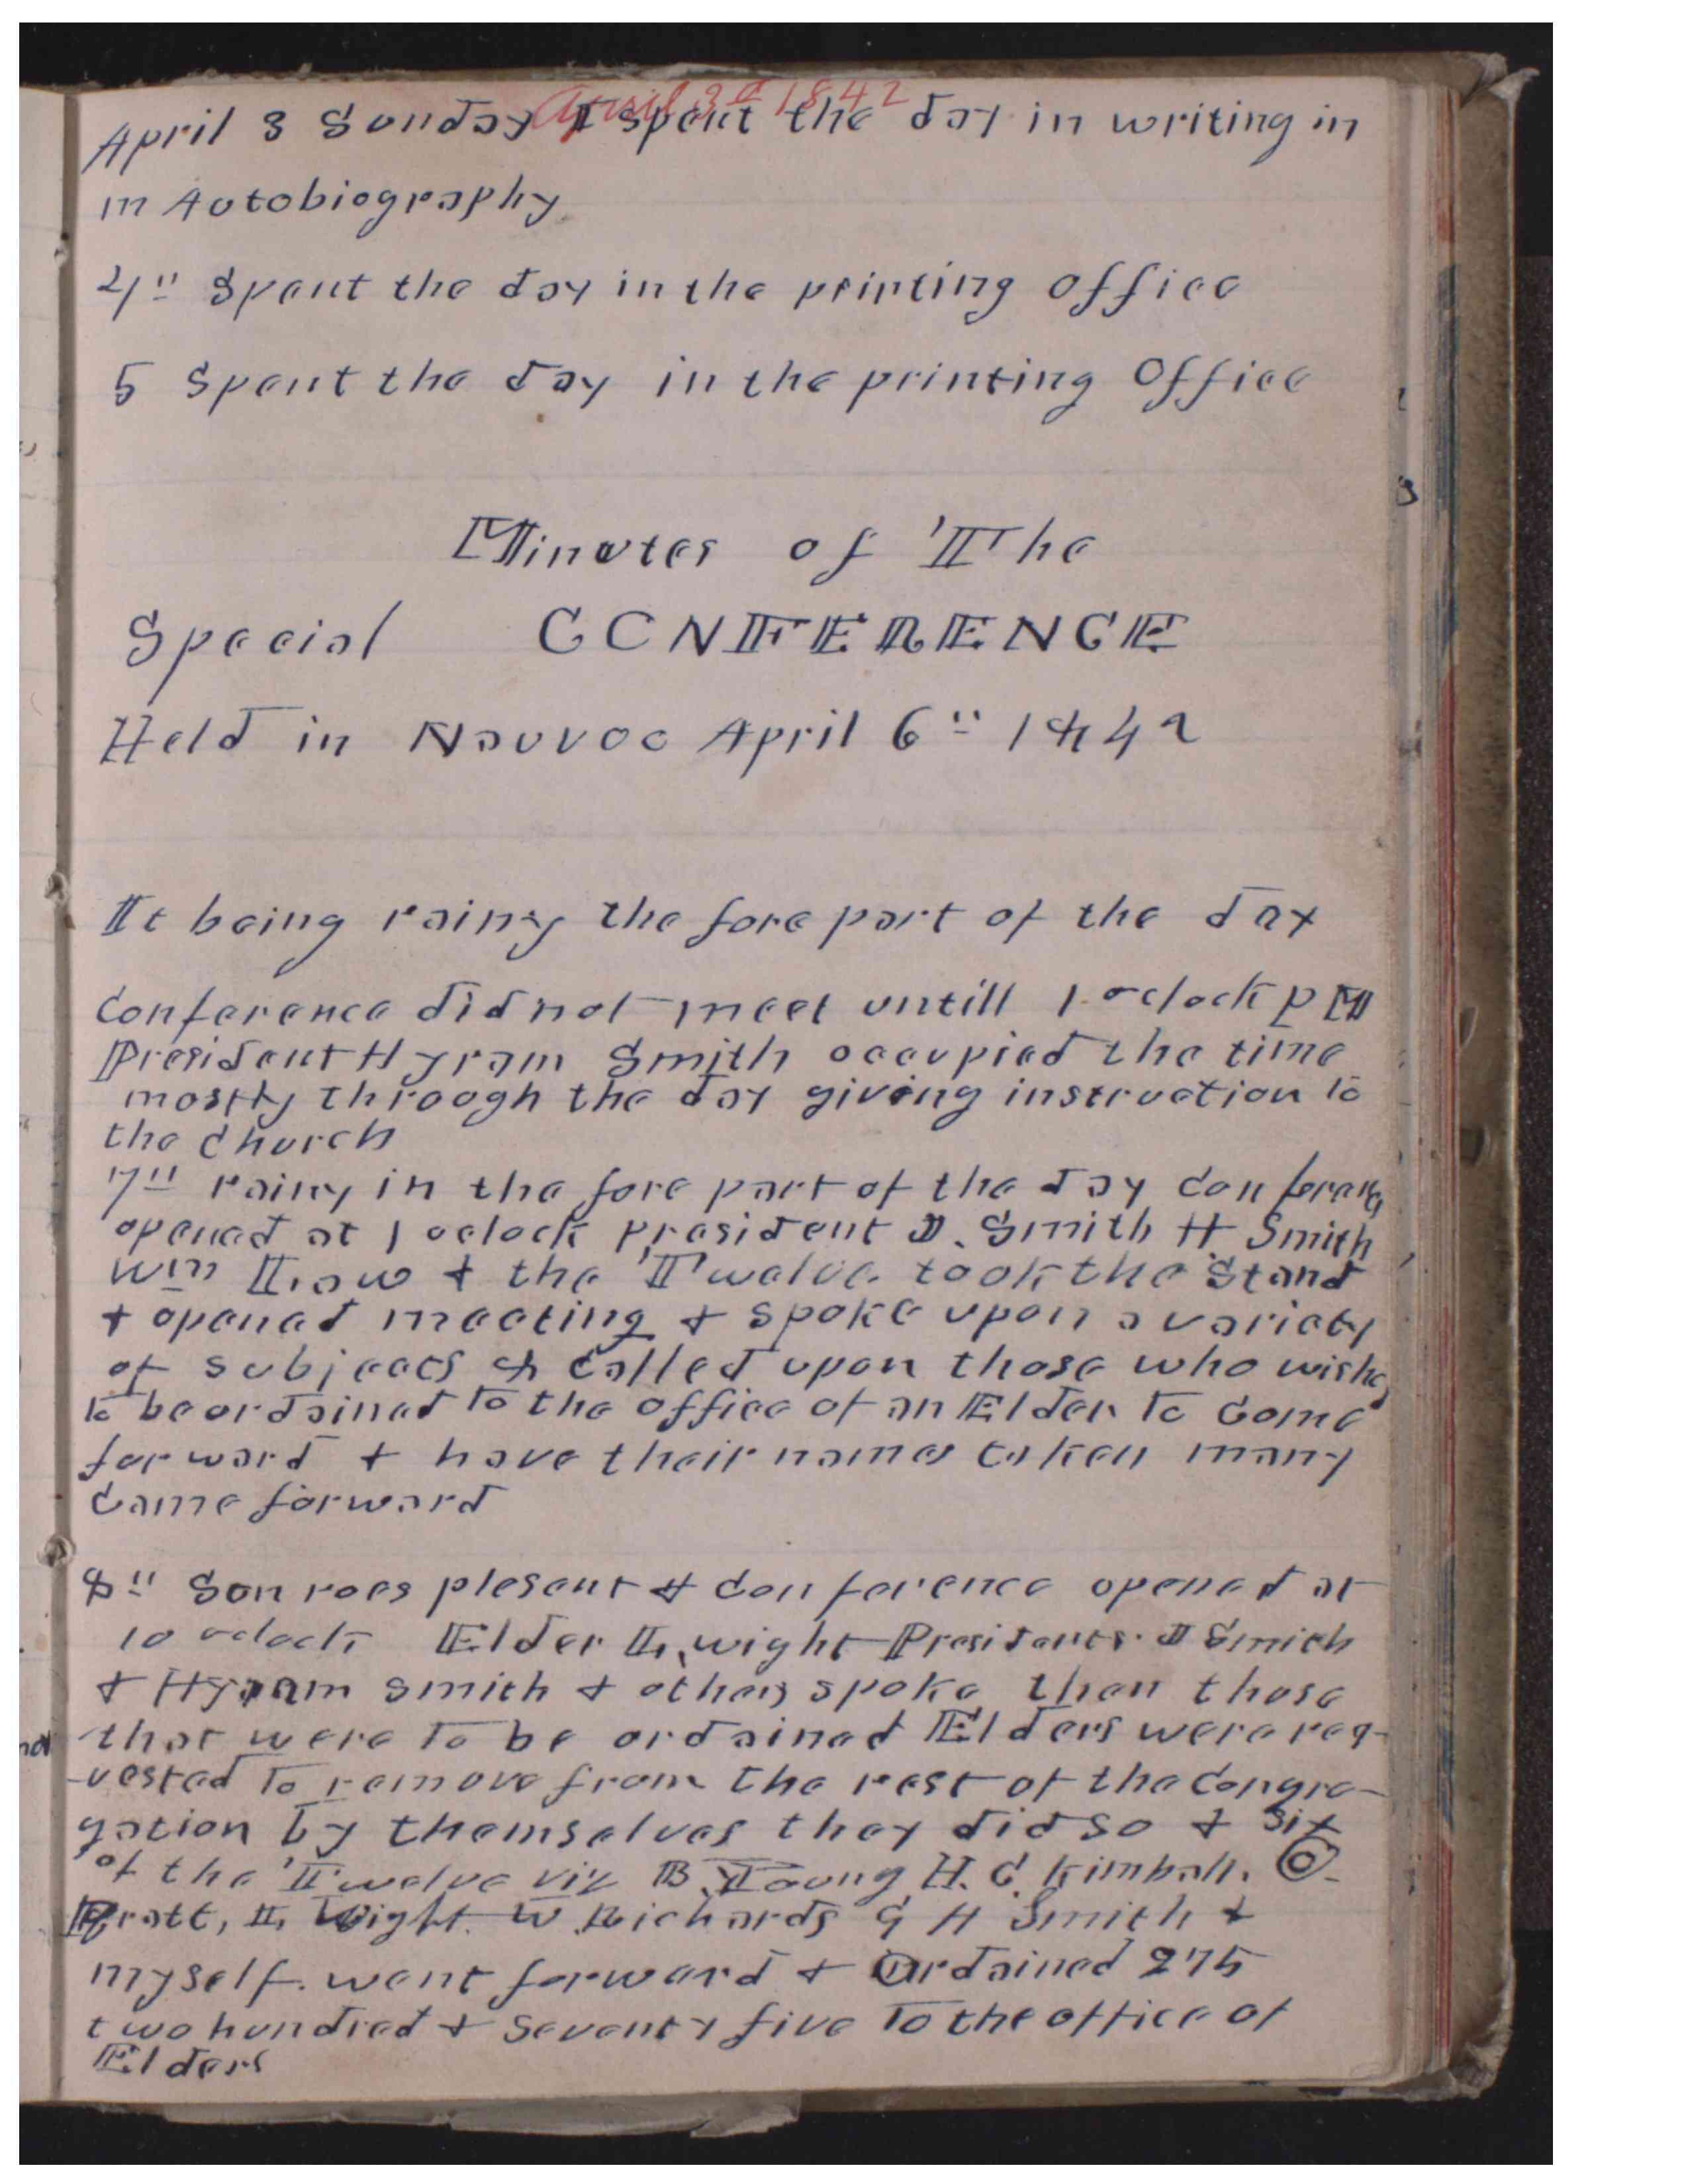 April 3d 1842
April 3 Sunday I spent the day in writing in
in Autobiography
4" Spent the day in the printing office
5 Spent the day in the printing Office
Minutes of The
Special CONFERENCE
Held in Nauvoo April 6" 1842
It being rainy the fore part of the day
Conference did not meet untill 1 oclock P M
President Hyram Smith occupied the time
mostly through the day giving instruction to
the Church
7" rainy in the fore part of the day Conferenc
opened at 1 oclock president J. Smith H Smith
Wm Law & the Twelve took the Stand
& opened meeting & spoke upon a variety
of subjects & Called upon those who wishe
to be ordained to the office of an Elder to Come
forward & have their names taken many
Came forward
8" Sun roes plesent & Conference opened at
10 oclock Elder L, wight Presidents J Smith
& Hyram Smith & others spoke then those
that were to be ordained Elders were req-
-uested to remove from the rest of the Congre-
gation by themselves they did so & six
of the Twelve viz B. Young, H. C. Kimball. O.
Pratt, L, Wight. W. Richards G A Smith &
myself. went forward & Ordained 275
two hundred & seventy five to the office of
Elders